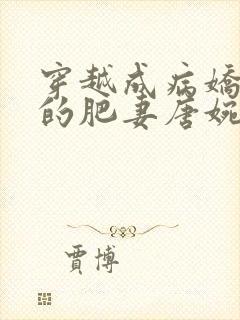 穿越成病嬌
的肥妻唐婉
賈博